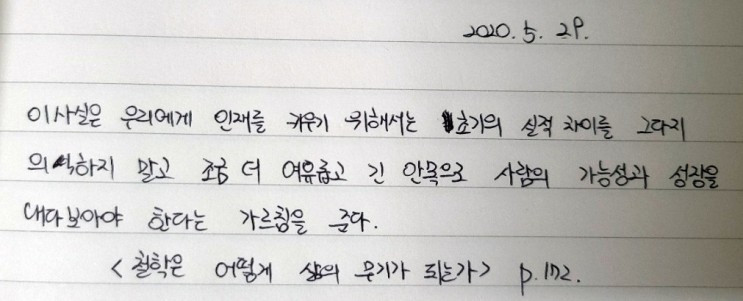 2020. 5. 29.
이 사실은 우리에게 인재를 키우기 위해서는 초기의 실적 차이를 그다지
의식하지 말고 조금 더 여유롭고 긴 안목으로 사람의 가능성과 성장을
내다보아야 한다는 가르침을 준다.
<철학은 어떻게 삶의 무기가 되는가> p.172.